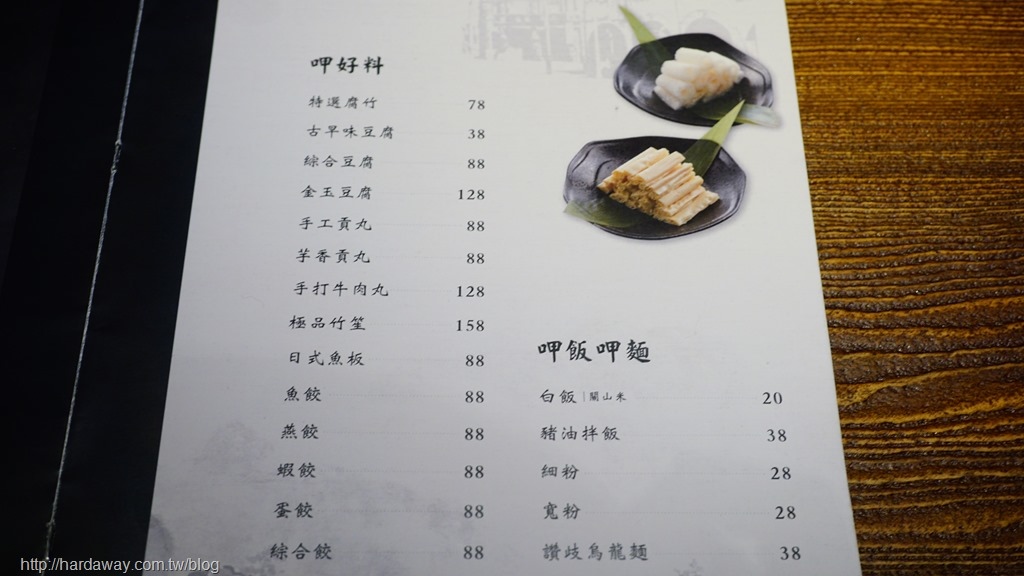 呷好料
特選腐竹 78
古早味豆腐 38
綜合豆腐 88
金玉豆腐 128
手工貢丸 88
芋香貢丸 88
手打牛肉丸 128
極品竹笙 158
日式魚板 88
魚餃 88
燕餃 88
蝦餃 88
蛋餃 88
綜合餃 88
呷飯呷麵
白飯|關山米 20
豬油拌飯 38
細粉 28
寬粉 28
讚岐烏龍麵 38
http://hardaway.com.tw/blog